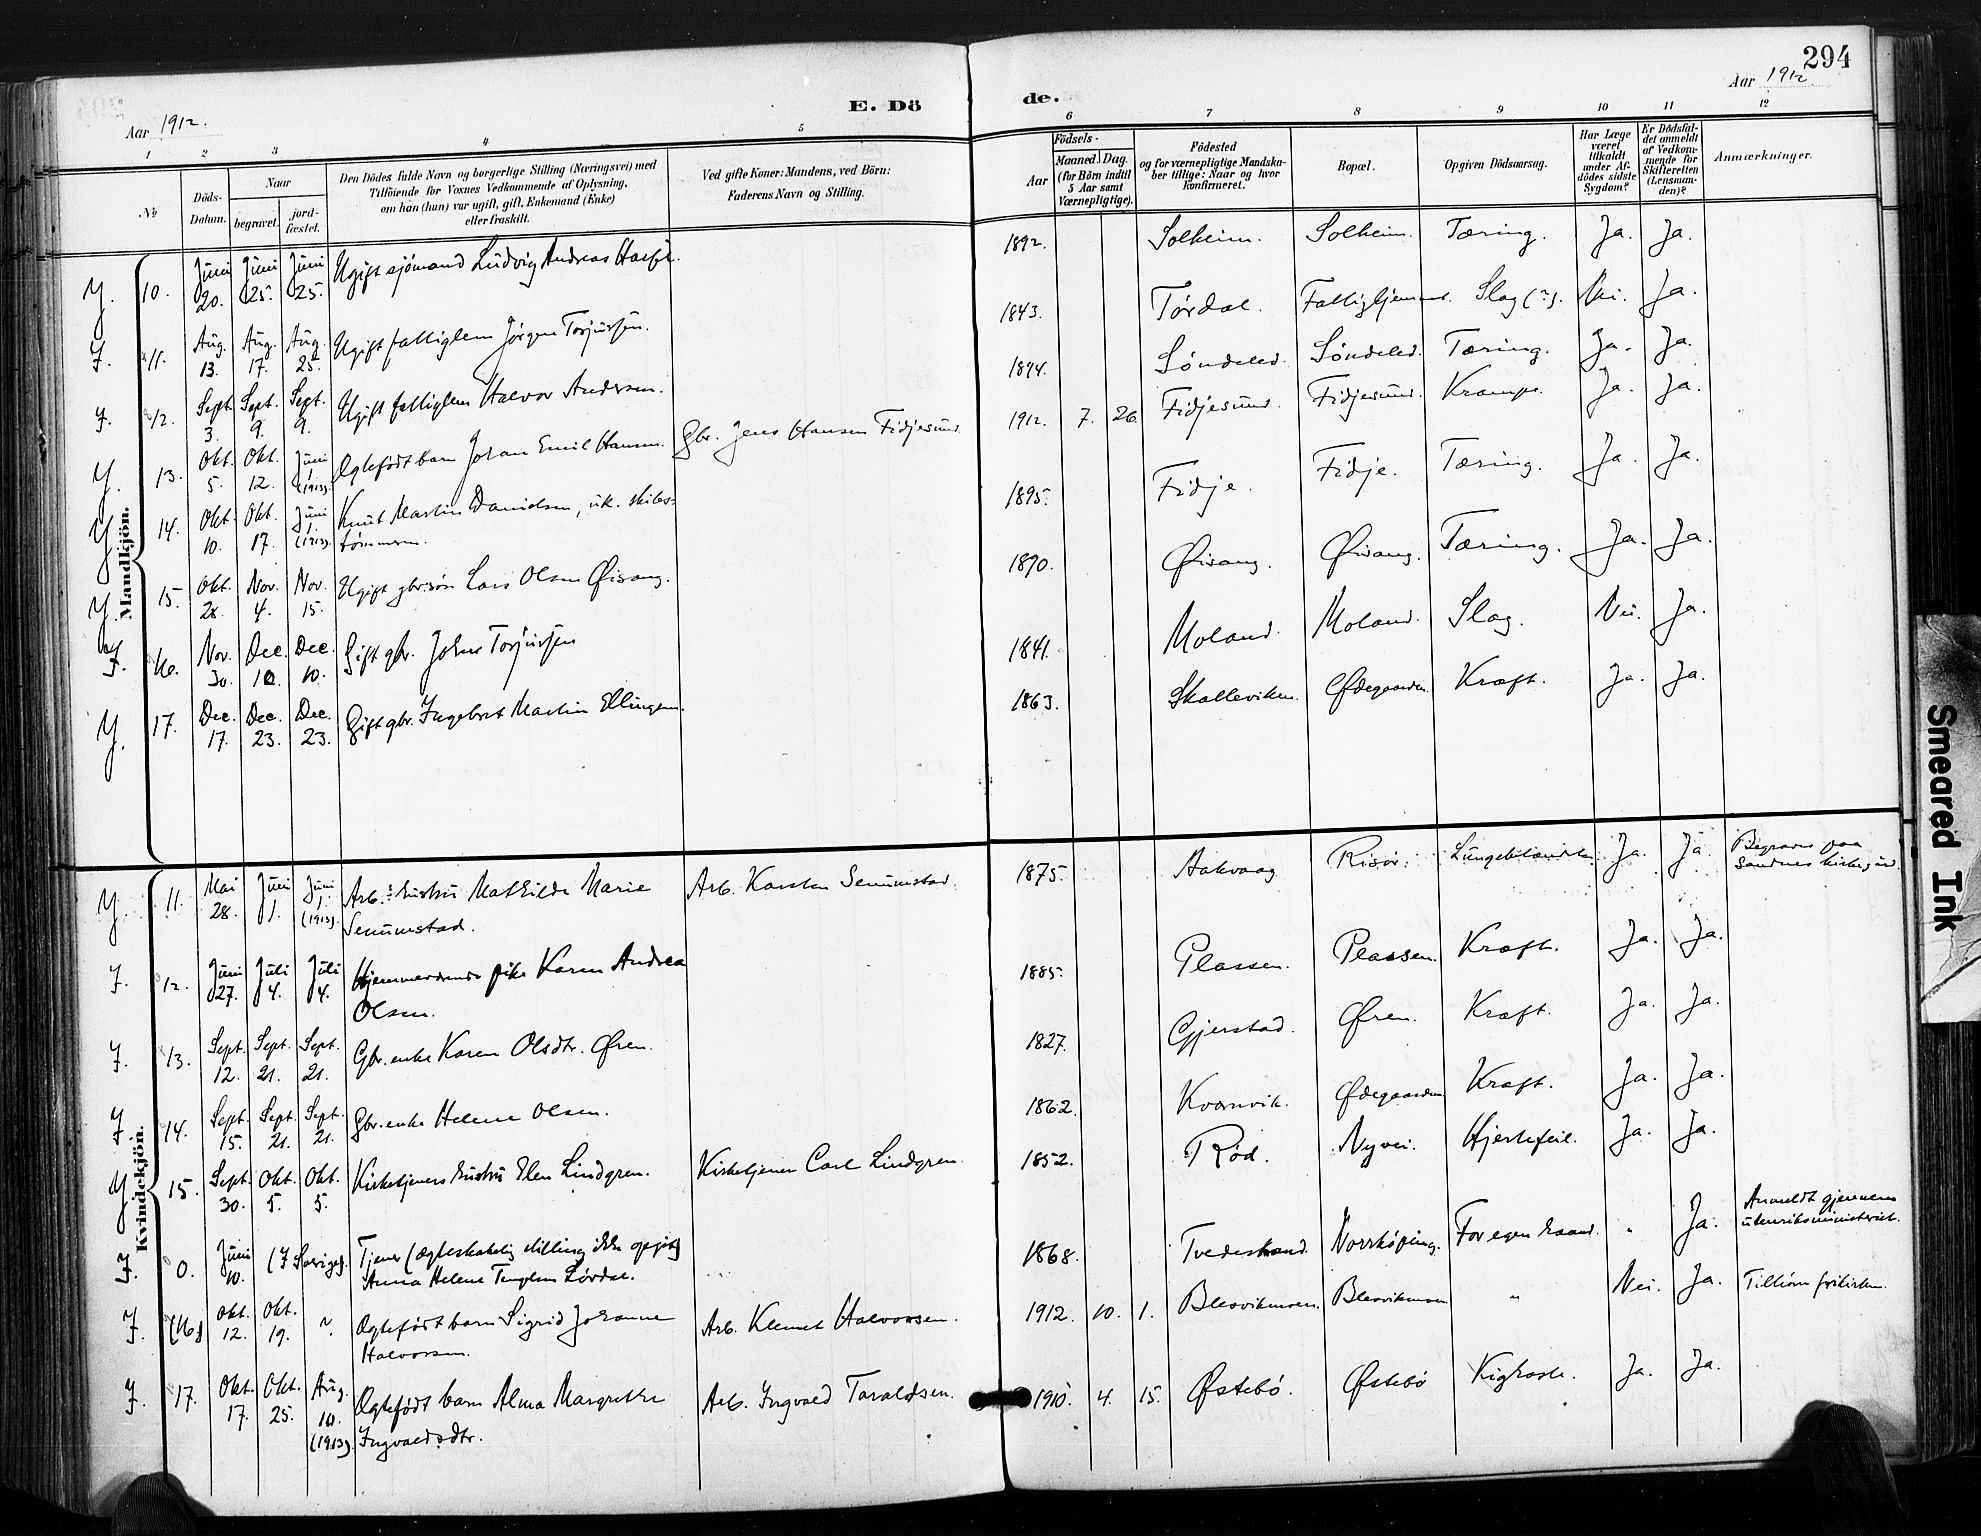 294
Aar 1912.
E. Dö
de.
Aar 1912
1 2 3 4 5 6 7 8 9 10 11 12
№
Döds-
Datum.
Naar
begravet.
jord-
fæstet.
Den Dödes fulde Navn og borgerlige Stilling (Næringsvei) med
Tilföiende for Voxnes Vedkommende af Oplysning,
om han (hun) var ugift, gift, Enkemand (Enke)
eller fraskilt.
Ved gifte Koner: Mandens, ved Börn:
Faderens Navn og Stilling.
Födsels-
Aar
Maaned. Dag.
(for Börn indtil
5 Aar samt
Værnepligtige).
Födested
og for værnepligtige Mandska-
ber tillige: Naar og hvor
konfirmeret.
Bopæl.
Opgiven Dödsaarsag.
Har Læge
været
tilkaldt
under Af-
dödes sidste
Sygdom?
Er Dödsfal-
det anmeldt
af Vedkom-
mende for
Skifteretten
(Lensman-
den)?
Anmærkninger.
Mandkjön.
Y. 10. Juni 20. Juni 25. Juni 25. Ugift sjömand Ludvig Andreas 1892. Solheim. Solheim. Tæring. Ja. Ja.
F. 11. Aug. 13. Aug. 17. Aug. 25. Ugift fattiglem Jörgen Torjussen. 1843. Tørdal. Fattighjemmet. Slag (?). Nei. Ja.
F. 12. Sept. 3. Sept. 9. Sept. 9. Ugift fattiglem Halvor Andersen. 1894. Søndeled. Søndeled. Tæring. Ja. Ja.
Y. 13. Okt. 5. Okt. 12. Juni 1. (1913). Ægtefödt barn Johan Emil Hansen. Gbr. Jens Hansen Fidjesund. 1912. 7. 26. Fidjesund. Fidjesund. Krampe. Ja. Ja.
Y. 14. Okt. 10. Okt. 17. Juni 1. (1913). Knut Martin Danielsen, uk. skibs-
tömmerm. 1895. Fidje. Fidje. Tæring. Ja. Ja.
Y. 15. Okt. 28. Nov. 4. Nov. 15. Ugift gbr.sön Lars Olsen Øisang. 1890. Øisang. Øisang. Tæring. Ja. Ja.
F. 16. Nov. 30. Dec. 10. Dec. 10. Gift gbr. Johns Torjussen 1841. Moland. Moland. Slag. Nei. Ja.
Y. 17. Dec. 17. Dec. 23. Dec. 23. Gift gbr. Ingebret Martin Ellingsen. 1863. Skalleviken. Ødegaarden. Kræft. Ja. Ja.
Kvindekjön.
Y. 11. Mai 28. Juni 1. Juni 1. (1913). Arb.s hustru Mathilde Marie
Senumstad. Arb. Karsten Senumstad. 1875. Aakvaag Risør. Lungebetændelse. Ja. Ja. Begraves paa
Sandnes kirkegård.
F. 12. Juni 27. Juli 4. Juli 4. Hjemmeværende pike Karen Andrea
Olsen. 1885. Plassen. Plassen. Kræft. Ja. Ja.
F. 13. Sept. 12. Sept. 21. Sept. 21. Gbr. enke Karen Olsdtr. Øren. 1827. Gjerstad. Øren. Kræft. Ja. Ja.
F. 14. Sept. 15. Sept. 21. Sept. 21. Gbr. enke Helene Olsen. 1862. Kvernvik. Ødegaarden Kræft. Ja. Ja.
Y. 15. Sept. 30. Okt. 5. Okt. 5. Kirketjeners hustru Elen Lindgren. Kirketjener Carl Lindgren. 1852. Rød. Nyvei. Hjertefeil. Ja. Ja.
F. 0. Juni 10. (I Sverige). Tjener (ægteskabelig stilling ikke opgit)
Anna Helene Lördal. 1868. Tvedestrand. Norrköping. For egen haand. " Ja. Anmeldt gjennem
utenriksministeriet.
F. (16) Okt. 12. Okt. 19. ? Ægtefödt barn Sigrid Johanne
Halvorsen. Arb. Klemet Halvorsen. 1912. 10. 1. Blesvikmoen. Blesvikmoen " Nei. Ja. Tilhörer frikirken.
F. 17. Okt. 17. Okt. 25. Aug. 10. (1913). Ægtefödt barn Alma Margrethe
Ingvaldsdtr. Arb. Ingvald Taraldsen. 1910. 4. 15. Østebö. Østebö Kighoste. Ja. Ja.
Smeared Ink